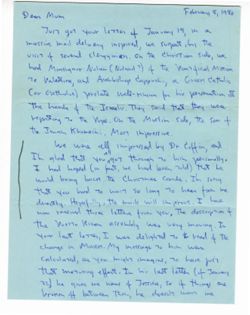 February 8, 1980
Dear Mum
Just got your letter of January 19, in a
massive mail delivery inspired, we suspect, by the
visit of several clergymen. On the Christian side, we
had Monsignor Nolan of the Pontifical Mission
to Palestine, and Archbishop Capucci, a Greek Catholic
(or Orthodox) prelate well-known for his persecution at
the hands of the Israelis. They said that they were
reporting to the Pope. On the Muslim side, the son of
the Imam Khomeini. Most impressive.
We were all impressed by Dr. Coffin, and
I'm glad that you got through to him personally.
I had hoped (in fact, we had been told) that he
would bring back the Christmas cards. I'm sorry
that you had to wait so long to hear from me
directly. Hopefully, the mails will improve. I have
now received three letters from you. The description of
the assembly was very moving. In
your last letter, I was delighted to be told of the
change in. My message to him were
calculated, as you might imagine, to have just
that motivating effect. In his last letter (of January
he gives me news of Jessica, so if things are
broken off between them, he doesn't want me